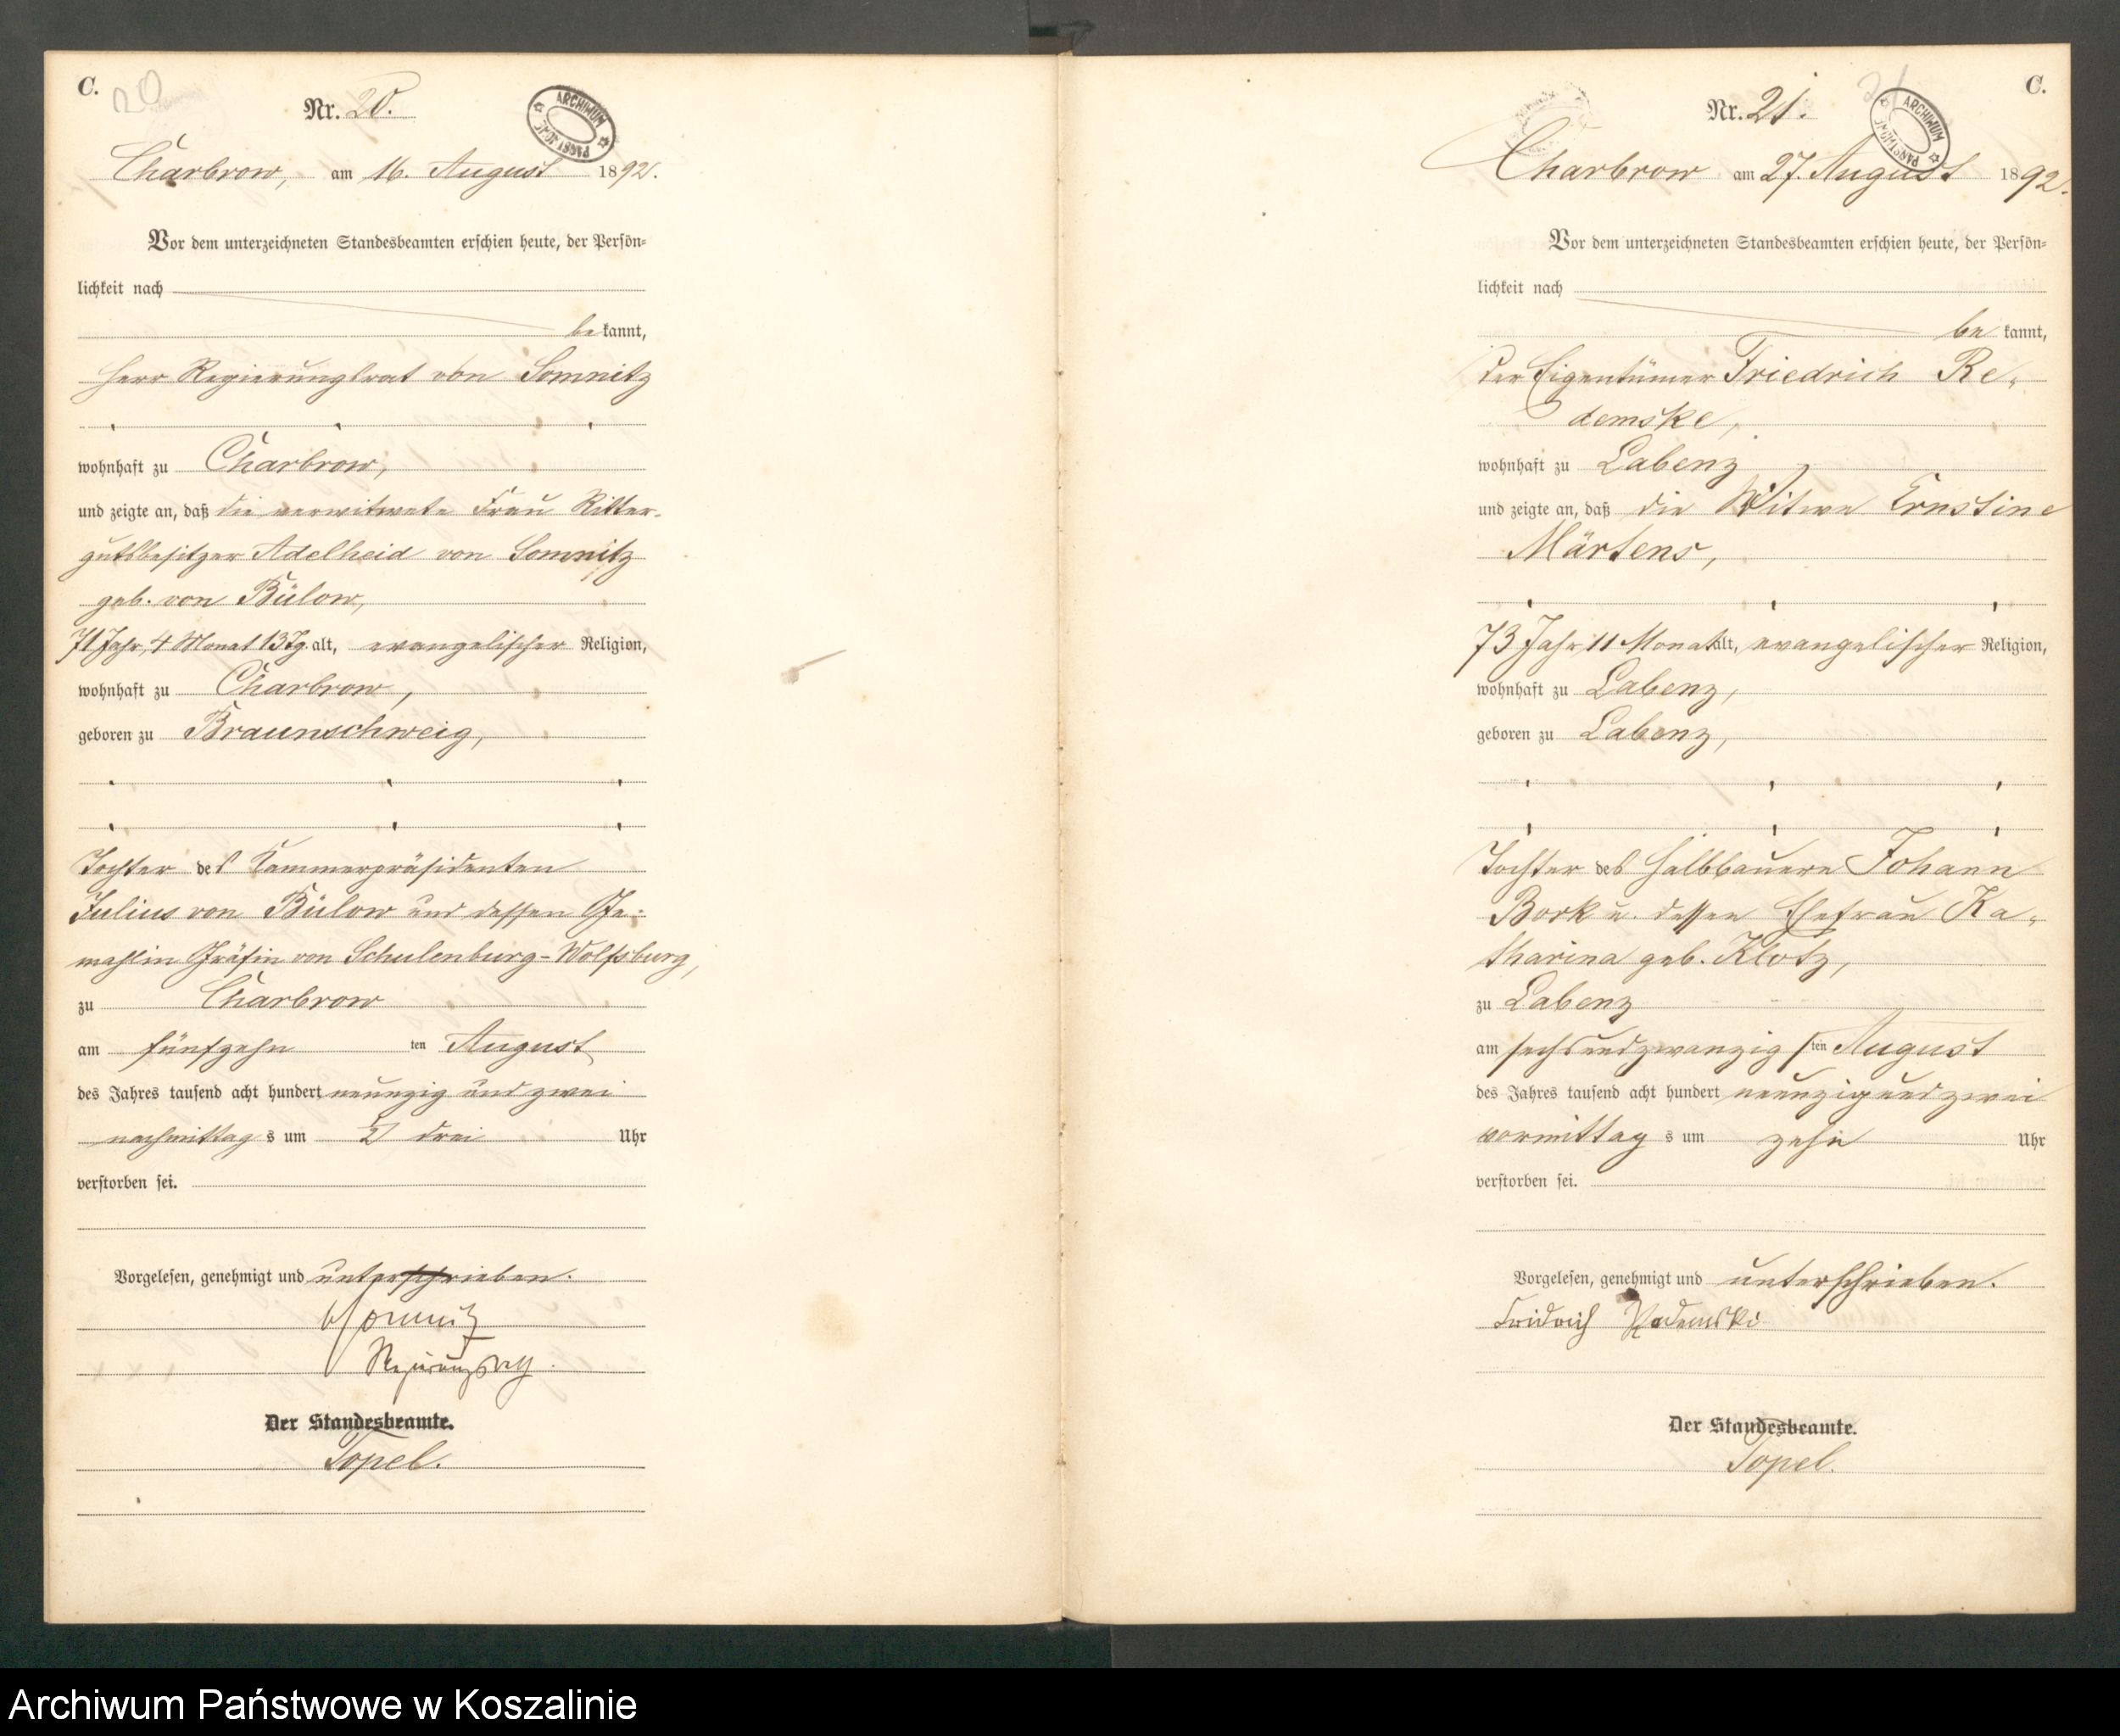 C.
20
Nr. 20.
ARCHIWUM PAŃSTWOWE
Charbrow, am 16. August 1892.
Vor dem unterzeichneten Standesbeamten erschien heute, der Persön=
lichkeit nach
be kannt,
Herr Regierungsrat von Somnitz
wohnhaft zu Charbrow,
und zeigte an, daß die verwitwete Frau Ritter-
gutsbesitzer Adelheid von Somnitz
geb. von Bülow,
71 Jahr, 4 Monat 13 Tg alt, evangelischer Religion,
wohnhaft zu Charbrow,
geboren zu Braunschweig,
Tochter des Kammerpräsidenten
Julius von Bülow und dessen Ge-
mahlin Gräfin von Schulenburg-Wolfsburg,
zu Charbrow
am fünfzehn ten August
des Jahres tausend acht hundert neunzig und zwei
nachmittag s um drei Uhr
verstorben sei.
Vorgelesen, genehmigt und unterschrieben.
vSomnitz
Regierungsrath.
Der Standesbeamte.
Topel.
C.
21
Nr. 21.
ARCHIWUM PAŃSTWOWE
Charbrow am 27. August 1892.
Vor dem unterzeichneten Standesbeamten erschien heute, der Persön=
lichkeit nach
be kannt,
der Eigentümer Friedrich Re-
demske,
wohnhaft zu Labenz
und zeigte an, daß die Witwe Ernstine
Märtens,
73 Jahr 11 Monat alt, evangelischer Religion,
wohnhaft zu Labenz,
geboren zu Labenz,
Tochter des Halbbauern Johann
Bork u. dessen Ehefrau Ka-
tharina geb. Klotz,
zu Labenz
am sechsundzwanzig sten August
des Jahres tausend acht hundert neunzig und zwei
vormittag s um zehn Uhr
verstorben sei.
Vorgelesen, genehmigt und unterschrieben.
Fridrich Redemske
Der Standesbeamte.
Topel.
Archiwum Państwowe w Koszalinie